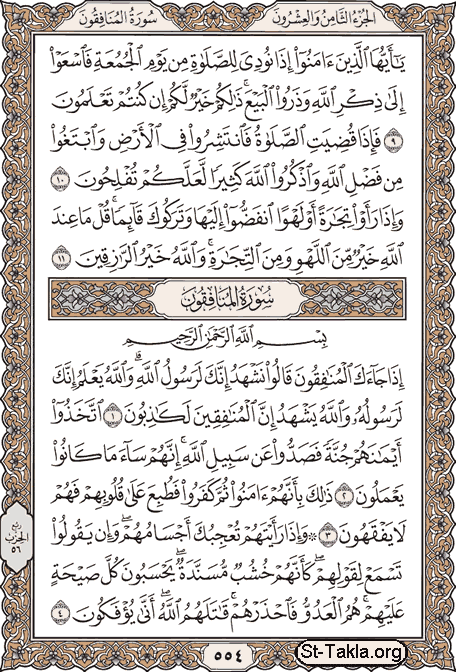 سُورَةُ المُنَافِقُونَ
الجُزْءُ الثَّامِنُ وَالعِشْرُونَ
يَٰٓأَيُّهَا ٱلَّذِينَ ءَامَنُوٓا۟ إِذَا نُودِىَ لِلصَّلَوٰةِ مِن يَوْمِ ٱلْجُمُعَةِ فَٱسْعَوْا۟
إِلَىٰ ذِكْرِ ٱللَّهِ وَذَرُوا۟ ٱلْبَيْعَ ۚ ذَٰلِكُمْ خَيْرٌ لَّكُمْ إِن كُنتُمْ تَعْلَمُونَ
٩ فَإِذَا قُضِيَتِ ٱلصَّلَوٰةُ فَٱنتَشِرُوا۟ فِى ٱلْأَرْضِ وَٱبْتَغُوا۟
مِن فَضْلِ ٱللَّهِ وَٱذْكُرُوا۟ ٱللَّهَ كَثِيرًا لَّعَلَّكُمْ تُفْلِحُونَ ١٠
وَإِذَا رَأَوْا۟ تِجَٰرَةً أَوْ لَهْوًا ٱنفَضُّوٓا۟ إِلَيْهَا وَتَرَكُوكَ قَآئِمًا ۚ قُلْ مَا عِندَ
ٱللَّهِ خَيْرٌ مِّنَ ٱللَّهْوِ وَمِنَ ٱلتِّجَٰرَةِ ۚ وَٱللَّهُ خَيْرُ ٱلرَّٰزِقِينَ ١١
سُورَةُ المُنَافِقُونَ
بِسْمِ ٱللَّهِ ٱلرَّحْمَٰنِ ٱلرَّحِيمِ
إِذَا جَآءَكَ ٱلْمُنَٰفِقُونَ قَالُوا۟ نَشْهَدُ إِنَّكَ لَرَسُولُ ٱللَّهِ ۗ وَٱللَّهُ يَعْلَمُ إِنَّكَ
لَرَسُولُهُۥ وَٱللَّهُ يَشْهَدُ إِنَّ ٱلْمُنَٰفِقِينَ لَكَٰذِبُونَ ١ ٱتَّخَذُوٓا۟
أَيْمَٰنَهُمْ جُنَّةً فَصَدُّوا۟ عَن سَبِيلِ ٱللَّهِ ۚ إِنَّهُمْ سَآءَ مَا كَانُوا۟
يَعْمَلُونَ ٢ ذَٰلِكَ بِأَنَّهُمْ ءَامَنُوا۟ ثُمَّ كَفَرُوا۟ فَطُبِعَ عَلَىٰ قُلُوبِهِمْ فَهُمْ
لَا يَفْقَهُونَ ٣ ۞ وَإِذَا رَأَيْتَهُمْ تُعْجِبُكَ أَجْسَامُهُمْ ۖ وَإِن يَقُولُوا۟
تَسْمَعْ لِقَوْلِهِمْ ۖ كَأَنَّهُمْ خُشُبٌ مُّسَنَّدَةٌ ۖ يَحْسَبُونَ كُلَّ صَيْحَةٍ
عَلَيْهِمْ ۚ هُمُ ٱلْعَدُوُّ فَٱحْذَرْهُمْ ۚ قَٰتَلَهُمُ ٱللَّهُ ۖ أَنَّىٰ يُؤْفَكُونَ ٤
ربع
الحزب
٥٦
٥٥٤
St-Takla.org